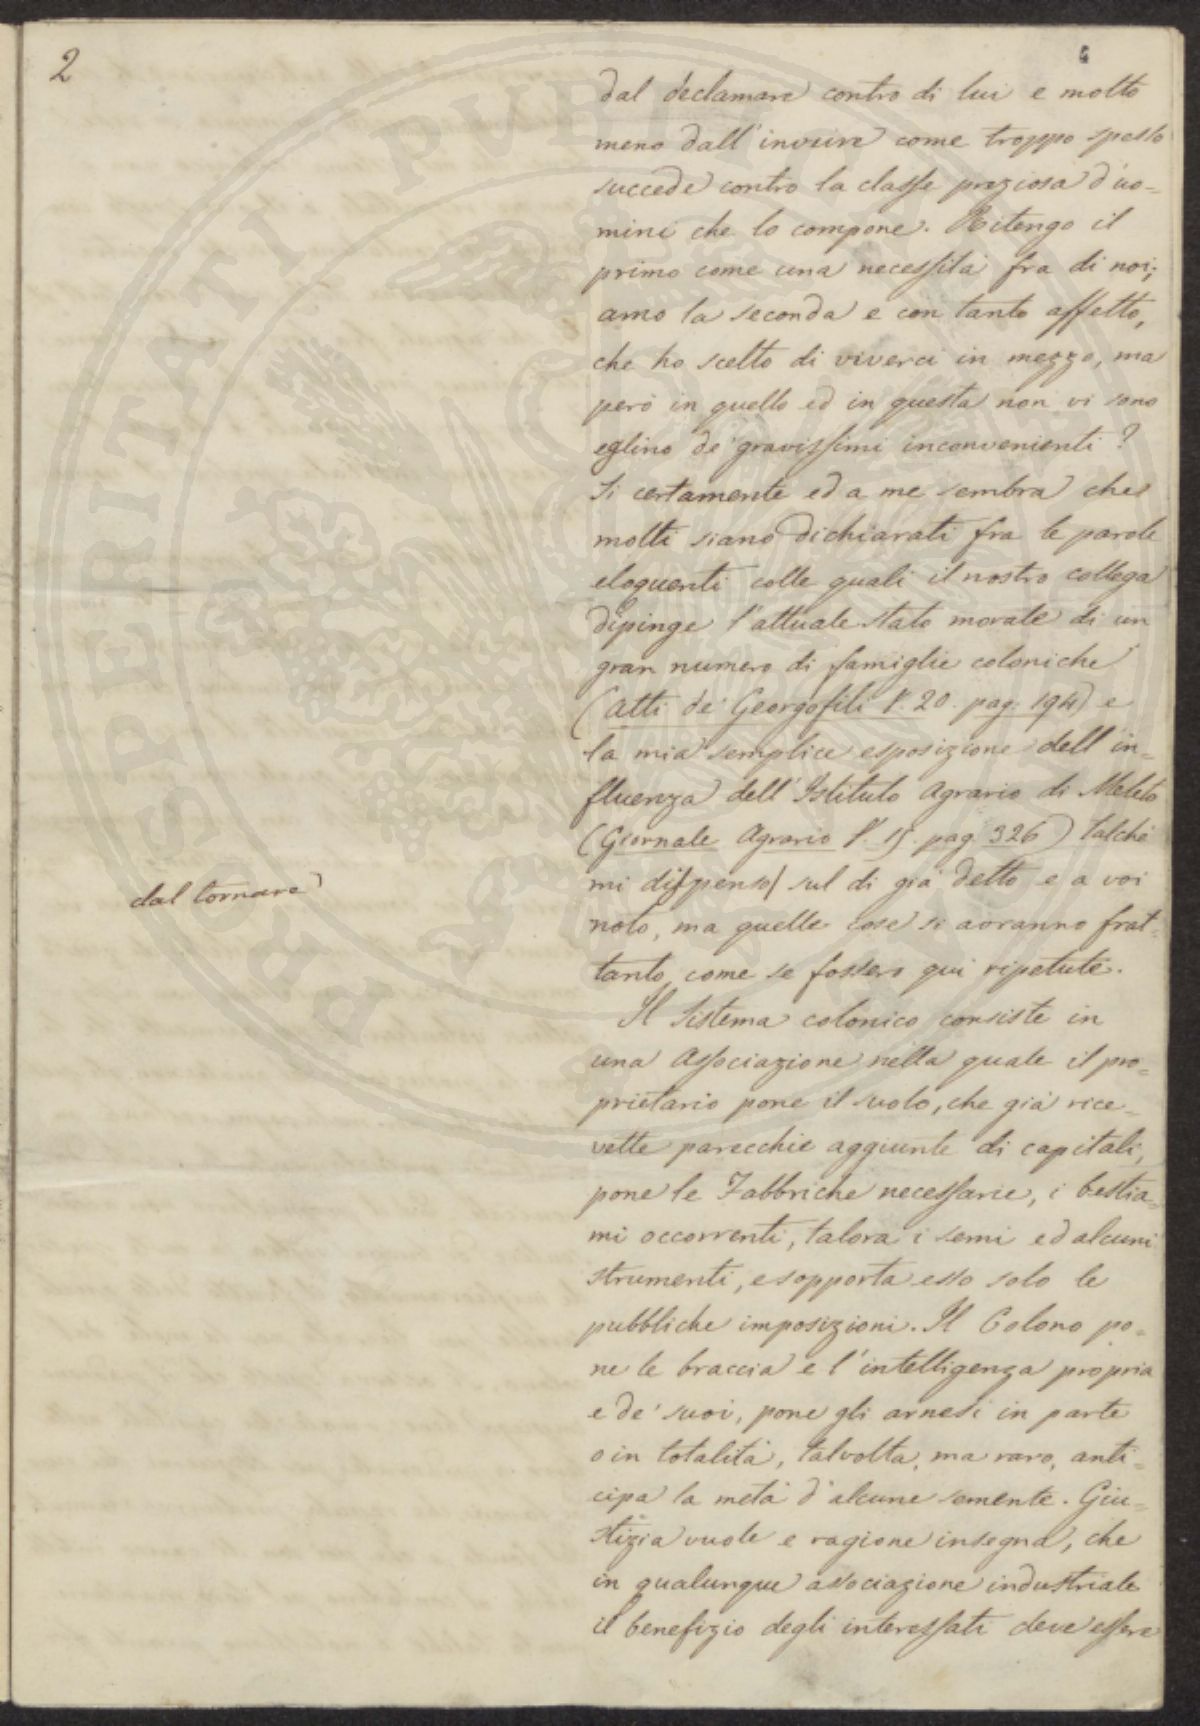 2
4
dal declamare contro di lui e molto
meno dall'inveire come troppo spesso
succede contro la classe preziosa d'uo=
mini che lo compone. Ritengo il
primo come una necessità fra di noi;
amo la seconda e con tanto affetto,
che ho scelto di viverci in mezzo, ma
però in quello ed in questa non vi sono
eglino de' gravissimi inconvenienti?
Si certamente ed a me sembra che
molti siano dichiarati fra le parole
eloquenti colle quali il nostro collega
dipinge l'attuale stato morale di un
gran numero di famiglie coloniche
(Atti de' Georgofili V. 20. pag. 194) e
la mia semplice esposizione dell'in=
fluenza dell'Istituto Agrario di Meleto
(Giornale Agrario V. 15. pag 326) talchè
dal tornare
mi dispenso/ sul di già detto e a voi
noto, ma quelle cose si avranno frat=
tanto come se fossero qui ripetute.
Il Sistema colonico consiste in
una Associazione nella quale il pro=
prietario pone il suolo, che già rice=
vette parecchie aggiunte di capitali,
pone le Fabbriche necessarie, i bestia=
mi occorrenti, talora i semi ed alcuni
strumenti, e sopporta esso solo le
pubbliche imposizioni. Il Colono po=
ne le braccia e l'intelligenza propria
e de' suoi, pone gli arnesi in parte
o in totalità, talvolta, ma raro, anti=
cipa la metà d'alcune semente. Giu=
stizia vuole e ragione insegna, che
in qualunque associazione industriale
il benefizio degli interessati deve essere
PROSPERITATI PUBLICAE